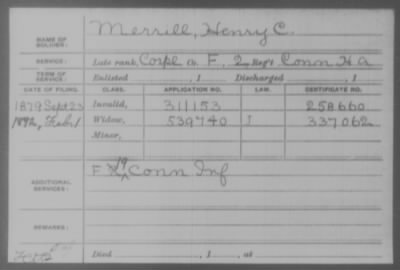 NAME OF SOLDIER: Merrill, Henry C.
SERVICE: Late rank, Corpl Co. F, 2 Reg't Conn H A
TERM OF SERVICE: Enlisted , 1 Discharged , 1
DATE OF FILING. CLASS. APPLICATION NO. LAW. CERTIFICATE NO.
1879 Sept 23 Invalid, 311153 258660
1892, Feb. 1 Widow, 539740 J 337062
Minor,
ADDITIONAL SERVICES: F 19 Conn Inf
REMARKS:
Died , 1 , at